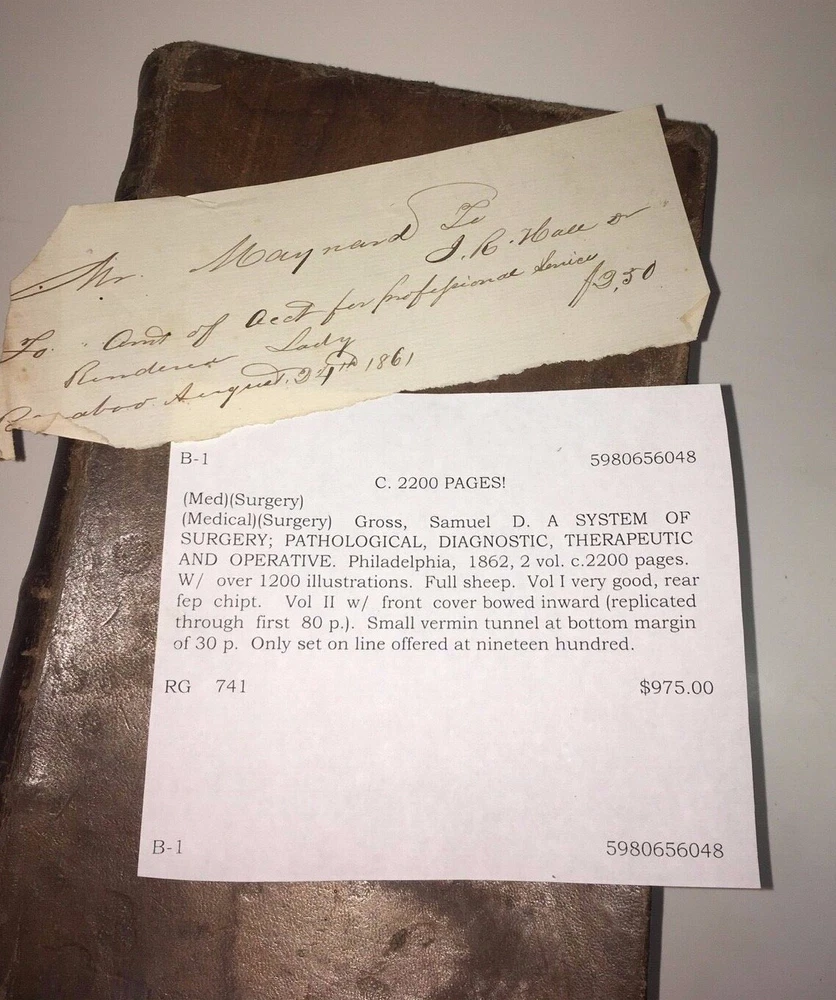 Mr. Maynard To
J. R. Hall Dr
To. Amt of Acct for professional Service
$2,50
Rendered Lady
Baraboo August. 24th 1861
B-1 5980656048
C. 2200 PAGES!
(Med)(Surgery)
(Medical)(Surgery) Gross, Samuel D. A SYSTEM OF
SURGERY; PATHOLOGICAL, DIAGNOSTIC, THERAPEUTIC
AND OPERATIVE. Philadelphia, 1862, 2 vol. c.2200 pages.
W/ over 1200 illustrations. Full sheep. Vol I very good, rear
fep chipt. Vol II w/ front cover bowed inward (replicated
through first 80 p.). Small vermin tunnel at bottom margin
of 30 p. Only set on line offered at nineteen hundred.
RG 741 $975.00
B-1 5980656048